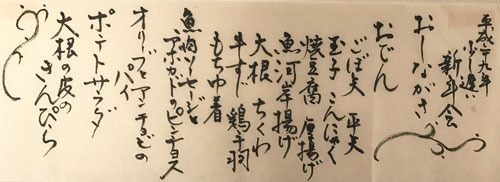 平成二十九年
少し遅い
新年会
おしながき
おでん
ごぼ天 平天
玉子 こんにゃく
焼豆腐 厚揚げ
魚河岸揚げ
大根 ちくわ
牛すじ 鶏手羽
もち巾着
魚肉ソーセージと
アボカドのピンチョス
オリーブとアンチョビの
パイ
ポテトサラダ
大根の皮の
きんぴら